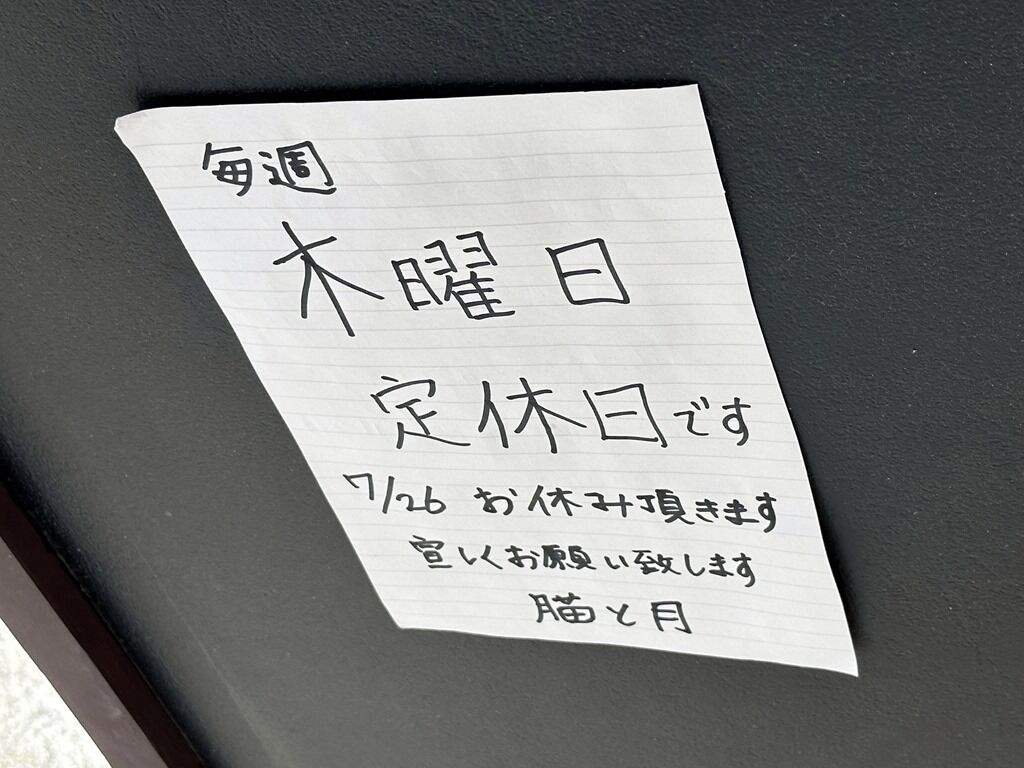 毎週
木曜日
定休日です
7/26 お休み頂きます
宜しくお願い致します
猫と月